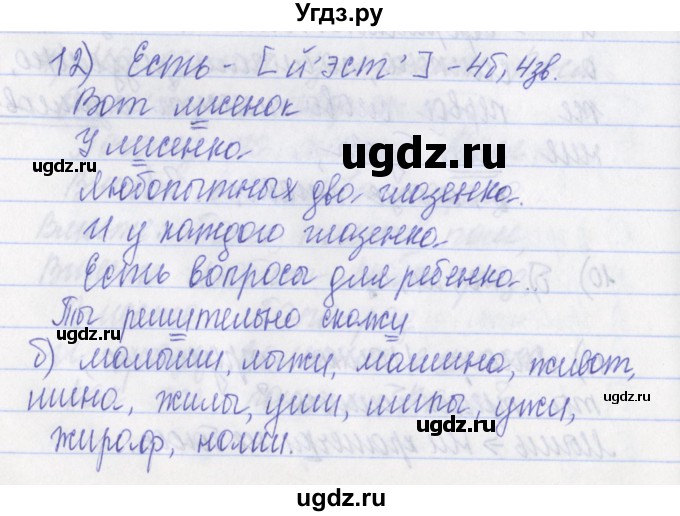 Угдз.ру
12) Есть - [й'эст'] - 4б, 4зв.
Вот лисенок
У лисенка
ugdz.ru
ugdz.ru
Любопытных два глазенка.
И у каждого глазенка
Есть вопросы для ребенка.
Ты решительно скажи
б) малыши, лыжи, машина, живот,
шина, жилы, уши, шипы, ужи,
ugdz.ru
ugdz.ru
жираф, наши.
ugdz.ru